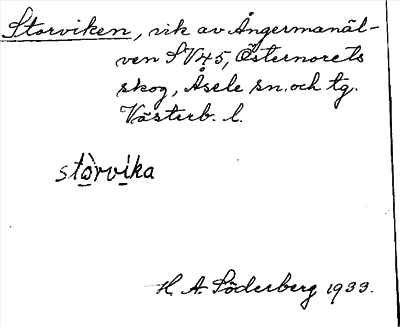 Storviken, vik av Ångermanäl-
ven SV45, Östernorets
skog, Åsele sn. och tg.
Västerb. l.
stòrvika
H. A. Söderberg 1933.